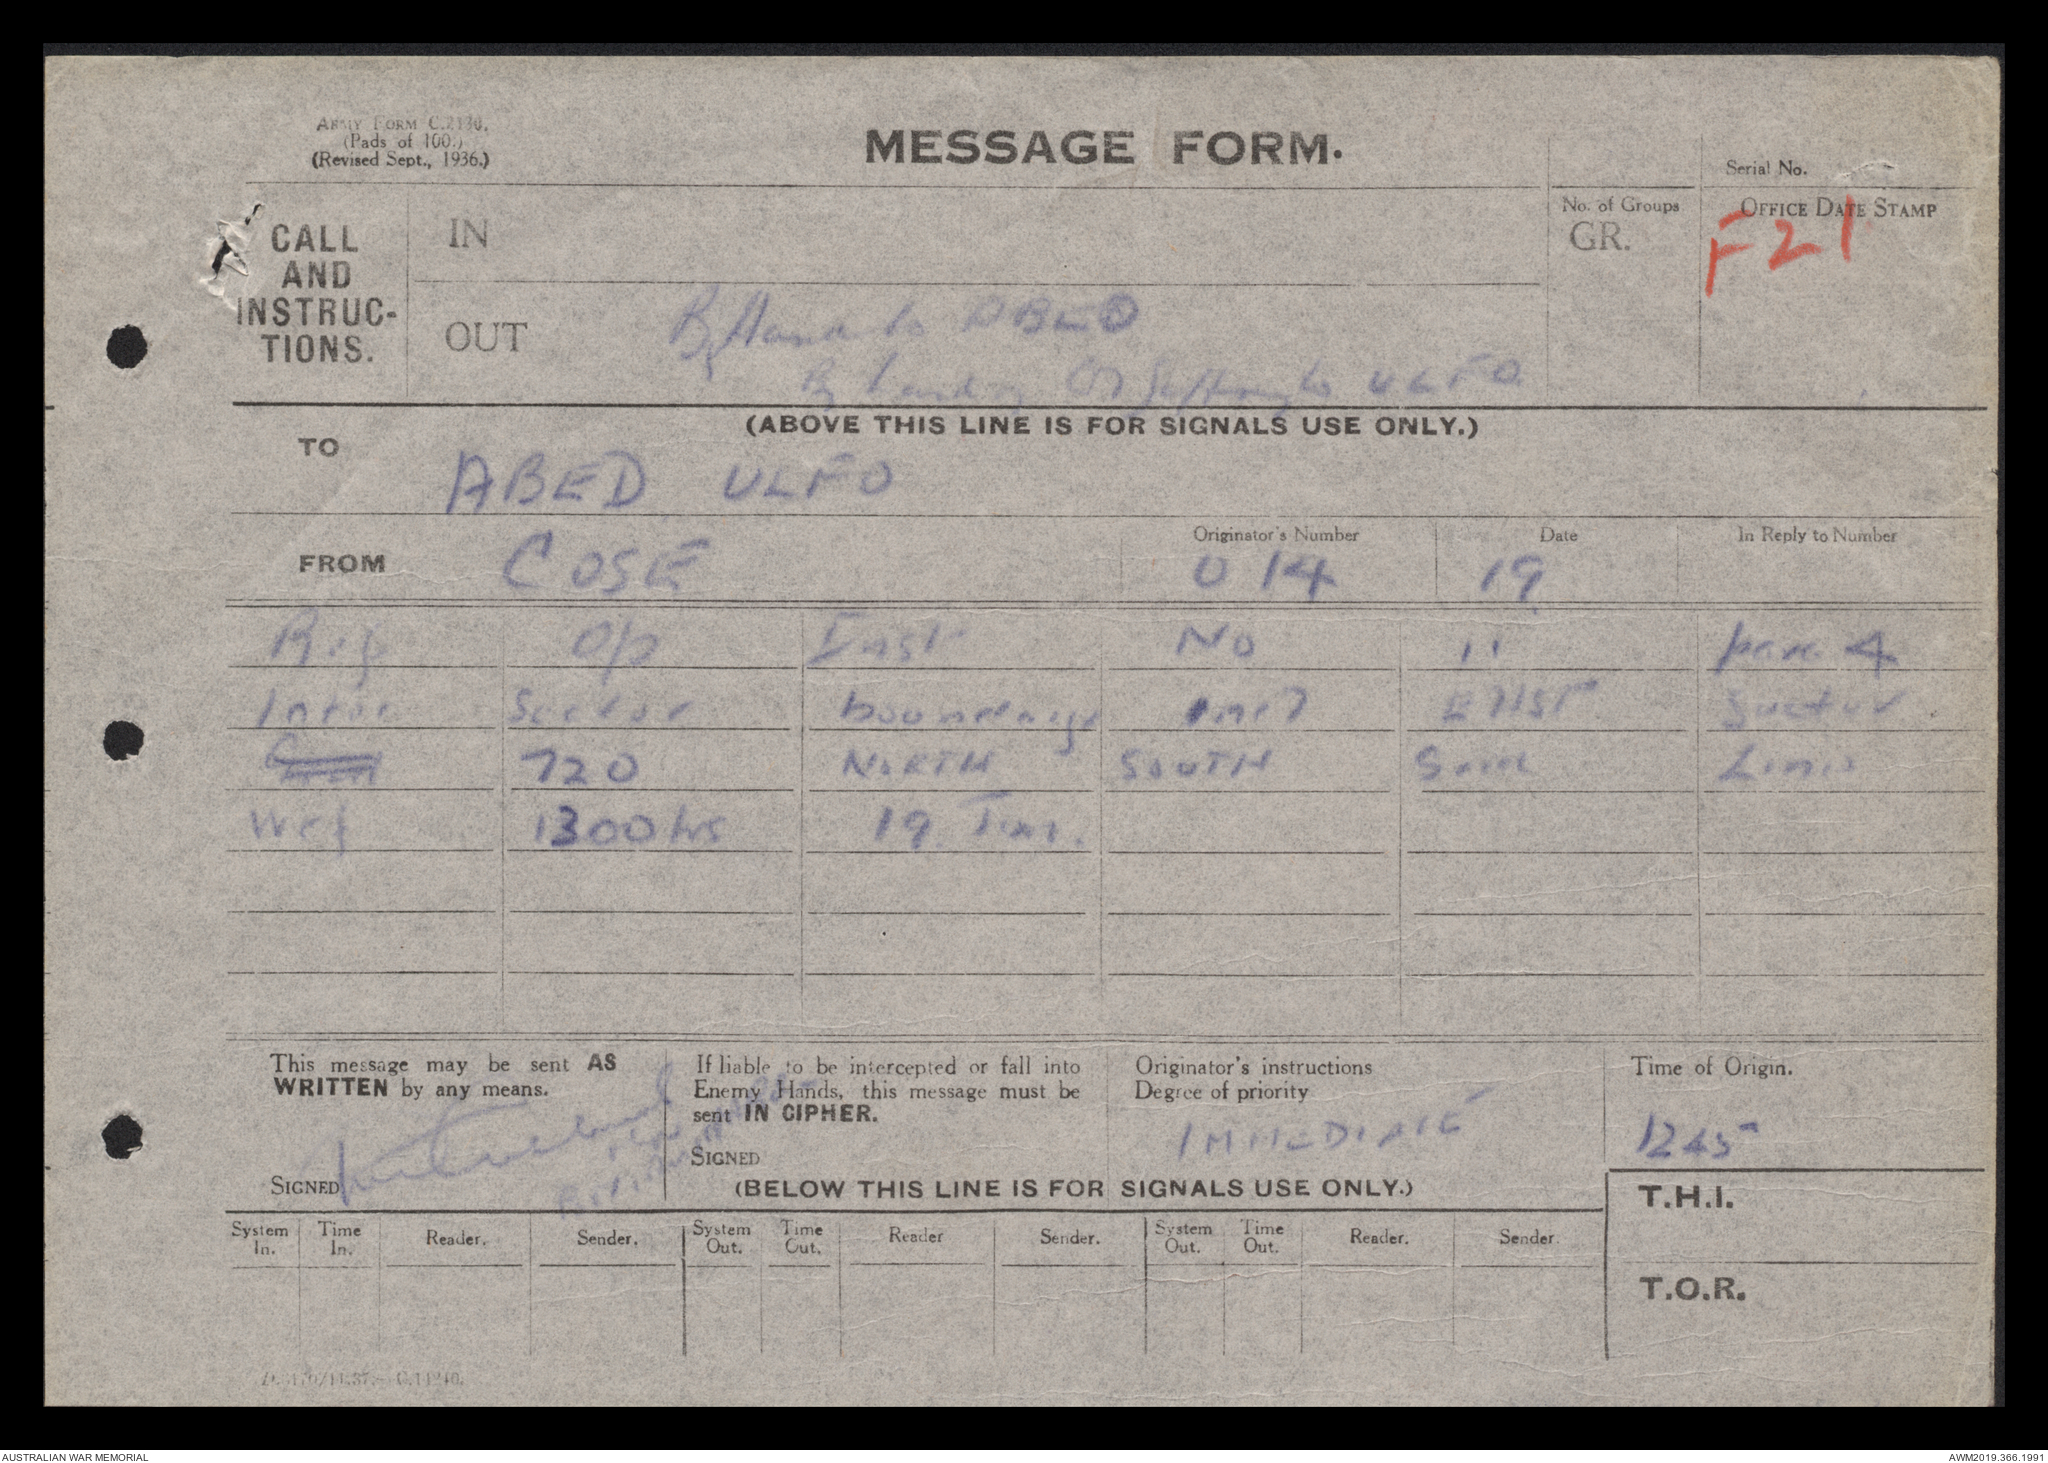 ARMY FORM C.2130.
(Pads of 100.)
(Revised Sept., 1936.)
MESSAGE FORM.
Serial No.
CALL
AND
INSTRUC-
TIONS.
IN
No. of Groups
GR.
OFFICE DATE STAMP
F21
OUT
By Hand to ABED
By ULFO
(ABOVE THIS LINE IS FOR SIGNALS USE ONLY.)
TO
ABED ULFO
FROM
COSE
Originator's Number
O 14
Date
19
In Reply to Number
Ref Op Inst No 11 para 4
Inter Sector boundary EAST Sector
720 NORTH SOUTH Grid Line
Wef 1300 hrs 19 Jan.
This message may be sent AS
WRITTEN by any means.
SIGNED
If liable to be intercepted or fall into
Enemy Hands, this message must be
sent IN CIPHER.
SIGNED
Originator's instructions
Degree of priority
IMMEDIATE
Time of Origin.
1245
(BELOW THIS LINE IS FOR SIGNALS USE ONLY.)
T.H.I.
System In. Time In. Reader. Sender. System Out. Time Out. Reader Sender. System Out. Time Out. Reader. Sender.
T.O.R.
AUSTRALIAN WAR MEMORIAL
AWM2019.366.1991